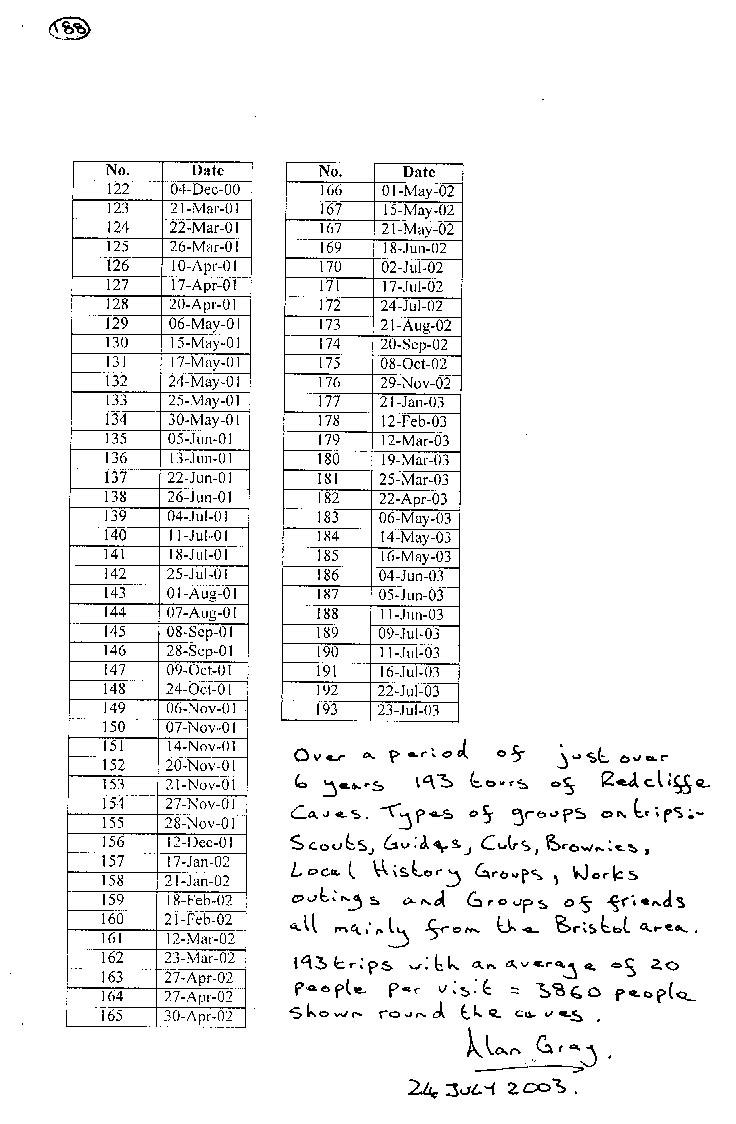 188
No. Date
122 04-Dec-00
123 21-Mar-01
124 22-Mar-01
125 26-Mar-01
126 10-Apr-01
127 17-Apr-01
128 20-Apr-01
129 06-May-01
130 15-May-01
131 17-May-01
132 24-May-01
133 25-May-01
134 30-May-01
135 05-Jun-01
136 13-Jun-01
137 22-Jun-01
138 26-Jun-01
139 04-Jul-01
140 11-Jul-01
141 18-Jul-01
142 25-Jul-01
143 01-Aug-01
144 07-Aug-01
145 08-Sep-01
146 28-Sep-01
147 09-Oct-01
148 24-Oct-01
149 06-Nov-01
150 07-Nov-01
151 14-Nov-01
152 20-Nov-01
153 21-Nov-01
154 27-Nov-01
155 28-Nov-01
156 12-Dec-01
157 17-Jan-02
158 21-Jan-02
159 18-Feb-02
160 21-Feb-02
161 12-Mar-02
162 23-Mar-02
163 27-Apr-02
164 27-Apr-02
165 30-Apr-02
No. Date
166 01-May-02
167 15-May-02
167 21-May-02
169 18-Jun-02
170 02-Jul-02
171 17-Jul-02
172 24-Jul-02
173 21-Aug-02
174 20-Sep-02
175 08-Oct-02
176 29-Nov-02
177 21-Jan-03
178 12-Feb-03
179 12-Mar-03
180 19-Mar-03
181 25-Mar-03
182 22-Apr-03
183 06-May-03
184 14-May-03
185 16-May-03
186 04-Jun-03
187 05-Jun-03
188 11-Jun-03
189 09-Jul-03
190 11-Jul-03
191 16-Jul-03
192 22-Jul-03
193 23-Jul-03
Over a period of just over
6 years 193 tours of Redcliffe
Caves. Types of groups on trips:-
Scouts, Guides, Cubs, Brownies,
Local History Groups, Works
outings and Groups of friends
all mainly from the Bristol area.
193 trips with an average of 20
people per visit = 3860 people
shown round the caves.
Alan Gray.
24 JULY 2003.